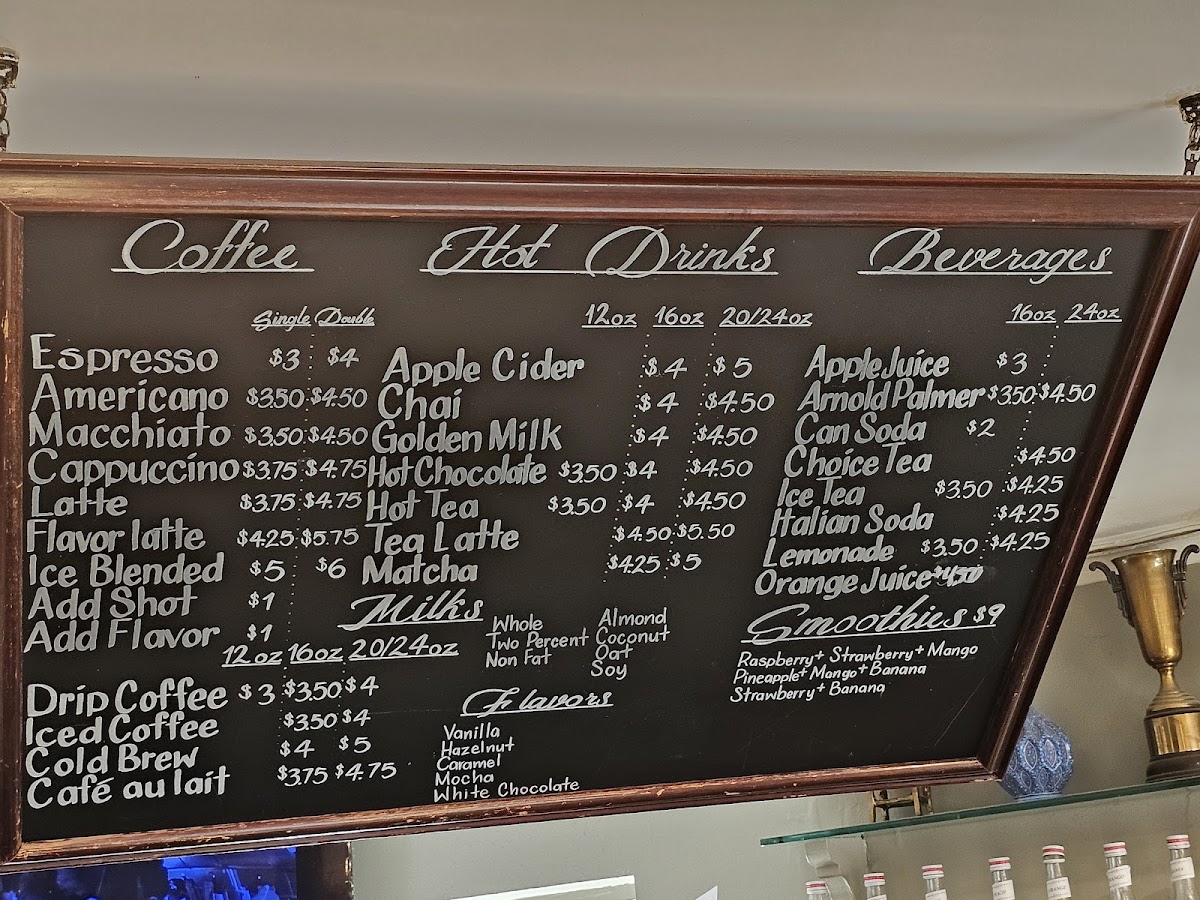 Coffee
Single Double
Espresso $3 $4
Americano $3.50 $4.50
Macchiato $3.50 $4.50
Cappuccino $3.75 $4.75
Latte $3.75 $4.75
Flavor latte $4.25 $5.75
Ice Blended $5 $6
Add Shot $1
Add Flavor $1
12oz 16oz 20/24oz
Drip Coffee $3 $3.50 $4
Iced Coffee $3.50 $4
Cold Brew $4 $5
Café au lait $3.75 $4.75
Hot Drinks
12oz 16oz 20/24oz
Apple Cider $4 $5
Chai $4 $4.50
Golden Milk $4 $4.50
Hot Chocolate $3.50 $4 $4.50
Hot Tea $3.50 $4 $4.50
Tea Latte $4.50 $5.50
Matcha $4.25 $5
Milks
Whole Almond
Two Percent Coconut
Non Fat Oat
Soy
Flavors
Vanilla
Hazelnut
Caramel
Mocha
White Chocolate
Beverages
16oz 24oz
Apple Juice $3
Arnold Palmer $3.50 $4.50
Can Soda $2
Choice Tea $4.50
Ice Tea $3.50 $4.25
Italian Soda $4.25
Lemonade $3.50 $4.25
Orange Juice $4.50
Smoothies $9
Raspberry + Strawberry + Mango
Pineapple + Mango + Banana
Strawberry + Banana